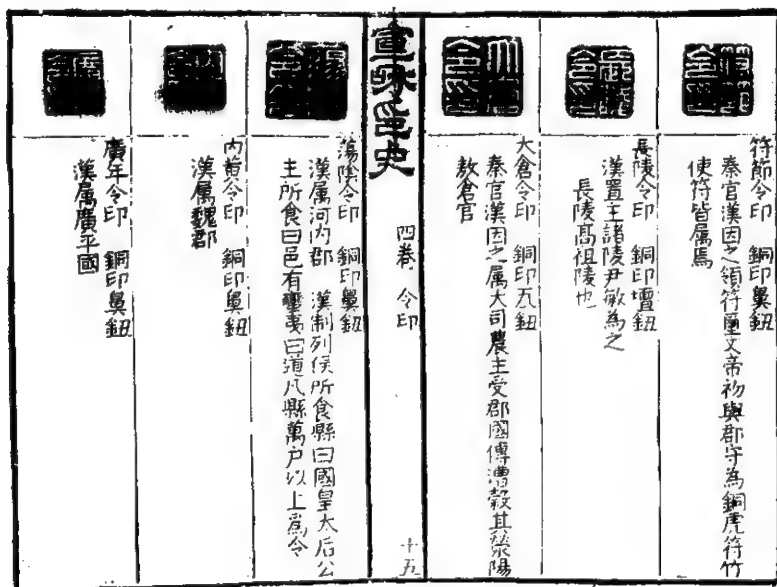 符節令印　銅印鼻鈕
秦官漢因之領符璽文帝初與郡守為銅虎符竹
使符皆属焉
長陵令印　銅印壇鈕
漢置主諸陵尹敏為之
長陵高祖陵也
大倉令印　銅印瓦鈕
秦官漢因之属大司農主受郡國傳漕穀其滎陽
敖倉官
宣和印史
四卷　令印
十五
蕩陰令印　銅印鼻鈕
漢属河内郡　漢制列侯所食縣曰國皇太后公
主所食曰邑有蠻夷曰道凡縣萬户以上爲令
内黄令印　銅印鼻鈕
漢属魏郡
廣年令印　銅印鼻鈕
漢属廣平國